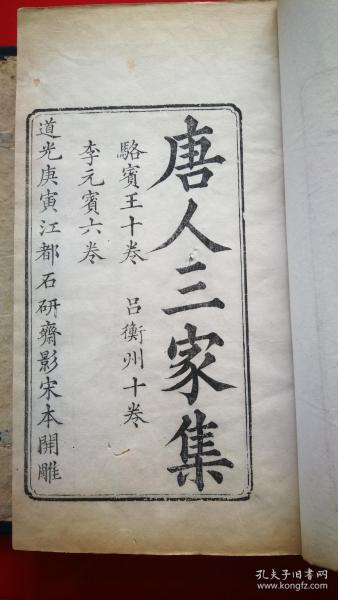 唐人三家集
駱賓王十卷 呂衡州十卷
李元賓六卷
道光庚寅江都石研齋影宋本開雕
孔夫子旧书网
www.kongfz.com